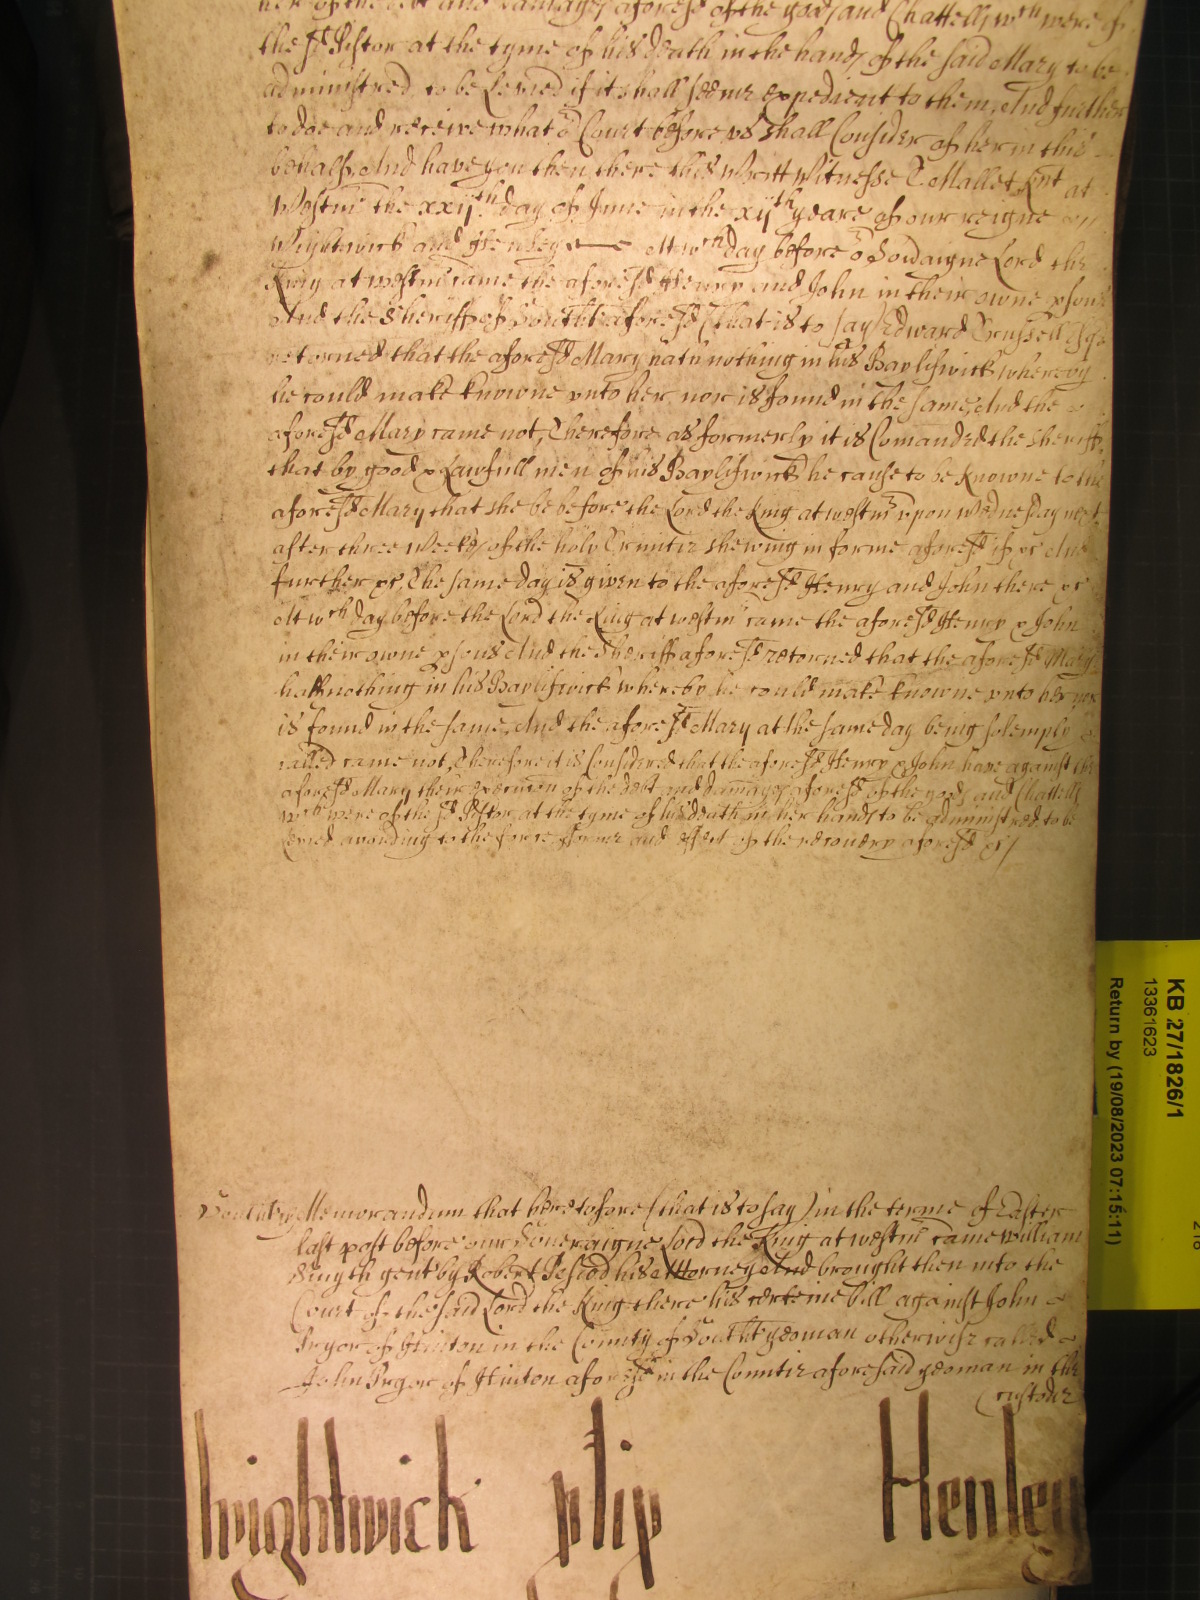 her of the debt and damages afores:d of the goods and Chattells w:ch were of
the s:d Pistor at the tyme of his death in the hands of the said Mary to be
administred to be Levied if it shall seeme expedient to them, And further
to doe and receive what o:r Court before us shall Consider of her in this
behalfe, And have you then there this Writt Witnesse T Mallet Knt at
Westm the xxij:th day of June in the xij:th yeare of our reigne
Wightwick and Henley At w:ch day before o:r Sov:aigne Lord the
King at westm came the afores:d Henry and John in their owne psons
And the Sheriff of Southt afores:d (that is to say) Edward Esq:r
retorned that the afores:d Mary hath nothing in his Bayliffwick whereby
he could make knowne unto her nor is found in the same, And the
afores:d Mary came not, Therefore as formerly it is Comanded the Sheriffe
that by good & Lawfull men of his Bayliffwick he cause to be knowne to the
afores:d Mary that she be before the Lord the King at westm upon Wednesday next
after three weeks of the holy Trinitie shewing in forme afores:d if &c And
further &c, The same day is given to the afores:d Henry and John there &c
At w:ch day before the Lord the King at westm came the afores:d Henry & John
in their owne psons And the Sheriff afores:d retorned that the afores:d Mary
hath nothing in his Bayliffwick whereby he could make knowne unto her nor
is found in the same, And the afores:d Mary at the same day being solemply
called came not, Therefore it is Considered that the afores:d Henry & John have against the
afores:d Mary their execution of the debt and damages afores:d of the goods and Chattells
w:ch were of the s:d Pistor at the tyme of his death in her hands to be administred to be
Levied according to the force forme and effect of the recovery afores:d &c/
Southt Memorandum that heretofore (that is to say) in the terme of Easter
last past before our Soveraigne Lord the King at westm came William
Smyth gent by Robert his Attorney And brought then into the
Court of the said Lord the King there his certeine bill against John
Pryor of Hinton in the County of Southt yeoman otherwise called
John Pryor of Hinton afores:d in the Countie aforesaid yeoman in the
custodie
Wightwick plip Henley
KB 27/1826/1
13361623
Return by (19/08/2023 07:15:11)